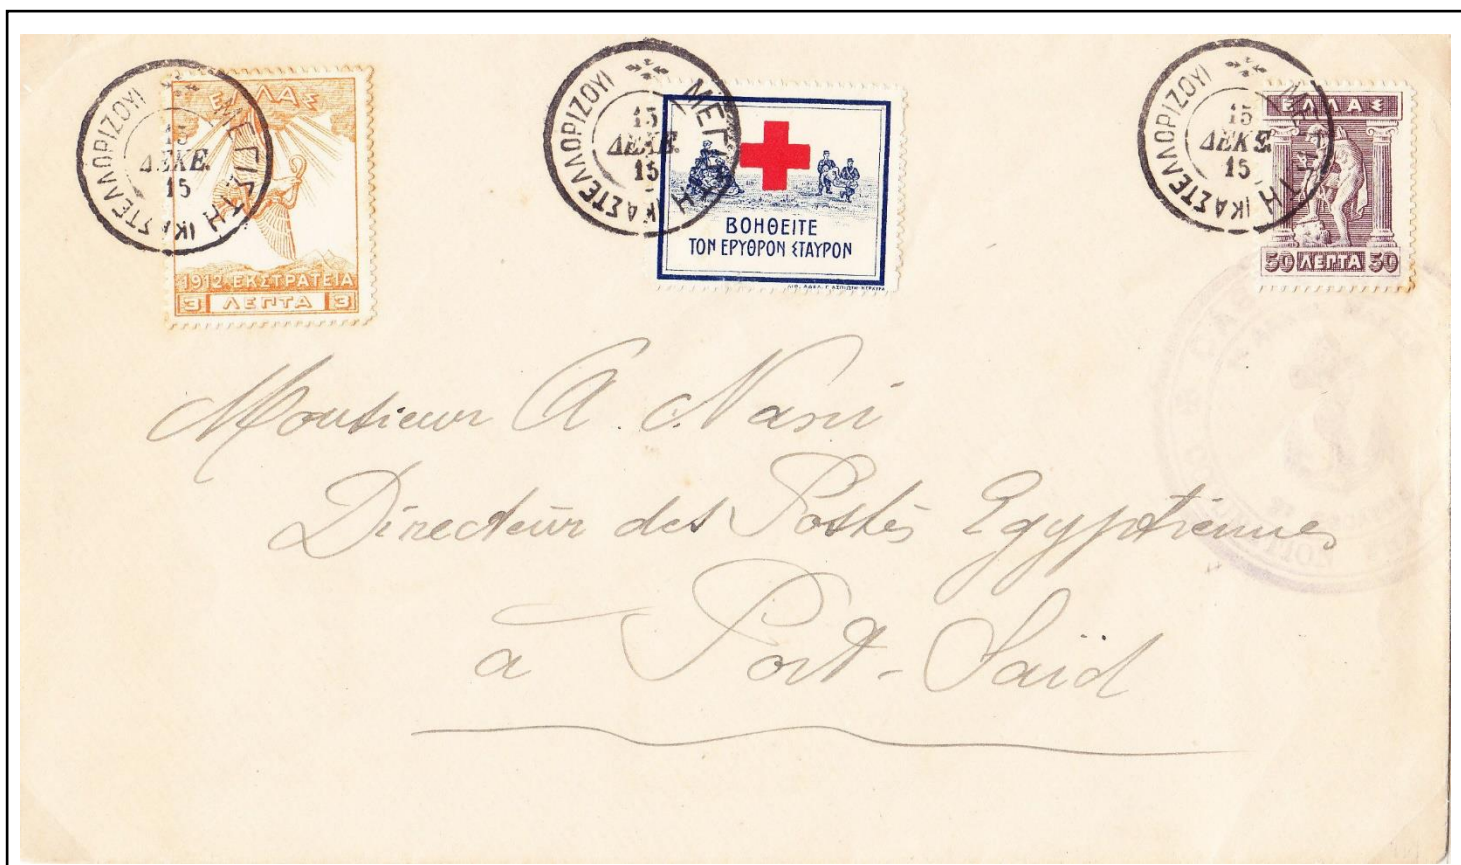 ΜΕΓΙΣΤΗ (ΚΑΣΤΕΛΛΟΡΙΖΟΥ)
15
ΔΕΚΕ.
15
ΕΛΛΑΣ
1912·ΕΚΣΤΡΑΤΕΙΑ
3 ΛΕΠΤΑ 3
ΜΕΓΙΣΤΗ (ΚΑΣΤΕΛΛΟΡΙΖΟΥ)
15
ΔΕΚΕ.
15
ΒΟΗΘΕΙΤΕ
ΤΟΝ ΕΡΥΘΡΟΝ ΣΤΑΥΡΟΝ
ΜΕΓΙΣΤΗ (ΚΑΣΤΕΛΛΟΡΙΖΟΥ)
15
ΔΕΚΕ.
15
ΕΛΛΑΣ
50 ΛΕΠΤΑ 50
Monsieur A. Nasri
Directeur des Postes Egyptiennes
a Port-Saïd